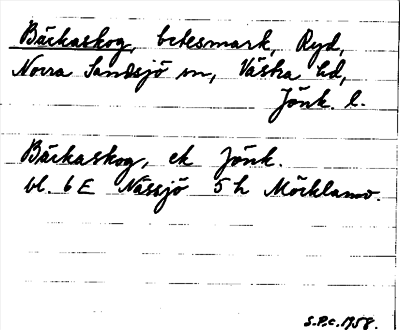 Bäckaskog, betesmark, Ryd,
Norra Sandsjö sn, Västra hd,
Jönk. l.
Bäckaskog, ek Jönk.
bl. 6 E Nässjö 5 h Möcklamo.
S.P.C. 1958.